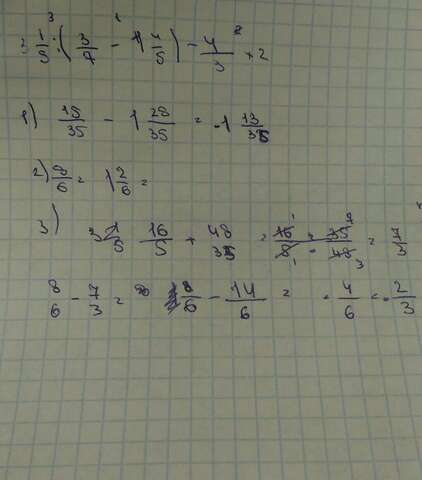 3 1 2
3 1/5 : (3/7 - 1 4/5) - 4/3 × 2
1) 15/35 - 1 28/35 = -1 13/35
2) 8/6 = 1 2/6 =
3) 3 1/5 16/5 + 48/35 = 16/5 * 35/48 = 7/3
8/6 - 7/3 = 8/6 - 14/6 = - 4/6 = - 2/3